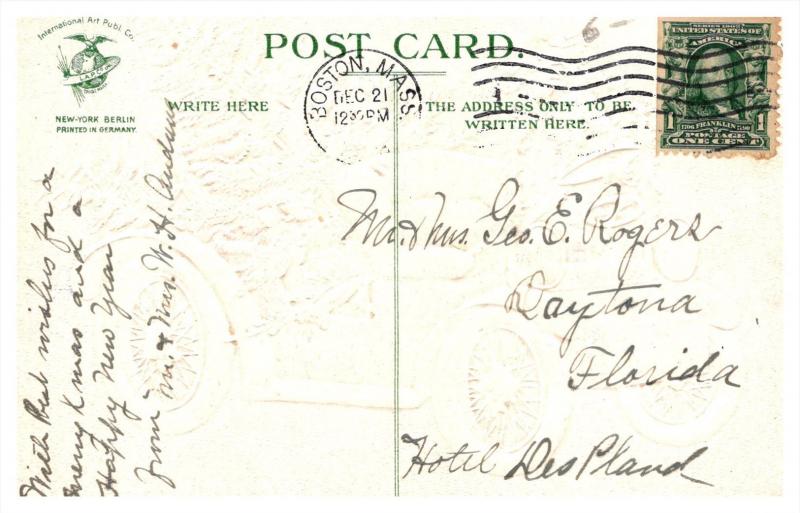 International Art Publ. Co.
NEW-YORK BERLIN
PRINTED IN GERMANY.
POST CARD.
WRITE HERE
THE ADDRESS ONLY TO BE
WRITTEN HERE.
BOSTON, MASS.
DEC 21
12 30 PM
SERIES 1902
UNITED STATES OF
AMERICA
1 FRANKLIN 1
POSTAGE
ONE CENT
With Best wishes for a
merry Xmas and a
Happy New Year
from Mr. & Mrs. W. H.
Mr. & Mrs. Geo. E. Rogers
Daytona
Florida
Hotel Des Pland